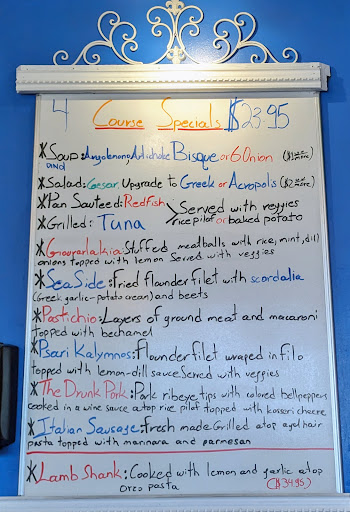 4 Course Specials $23.95
*Soup: Avgolemono Artichoke Bisque or 6 Onion ($1 more)
AND
*Salad: Caesar Upgrade to Greek or Acropolis ($2 more)
*Pan Sauteed: Redfish > Served with veggies
*Grilled: Tuna rice pilaf or baked potato
*Giouvarlakia: Stuffed meatballs with rice, mint, dill
onions topped with lemon Served with veggies
*Sea Side: Fried flounder filet with scordalia
(Greek garlic-potato cream) and beets
*Pastichio: Layers of ground meat and macaroni
topped with bechamel
*Psari Kalymnos: Flounder filet wraped in filo
topped with lemon-dill sauce Served with veggies
*The Drunk Pork: Pork ribeye tips with colored bellpeppers
cooked in a wine sauce atop rice pilaf topped with kasseri cheese
*Italian Sausage: Fresh made Grilled atop agel hair
pasta topped with marinara and parmesan
*Lamb Shank: Cooked with lemon and garlic atop
Orzo pasta ($34.95)